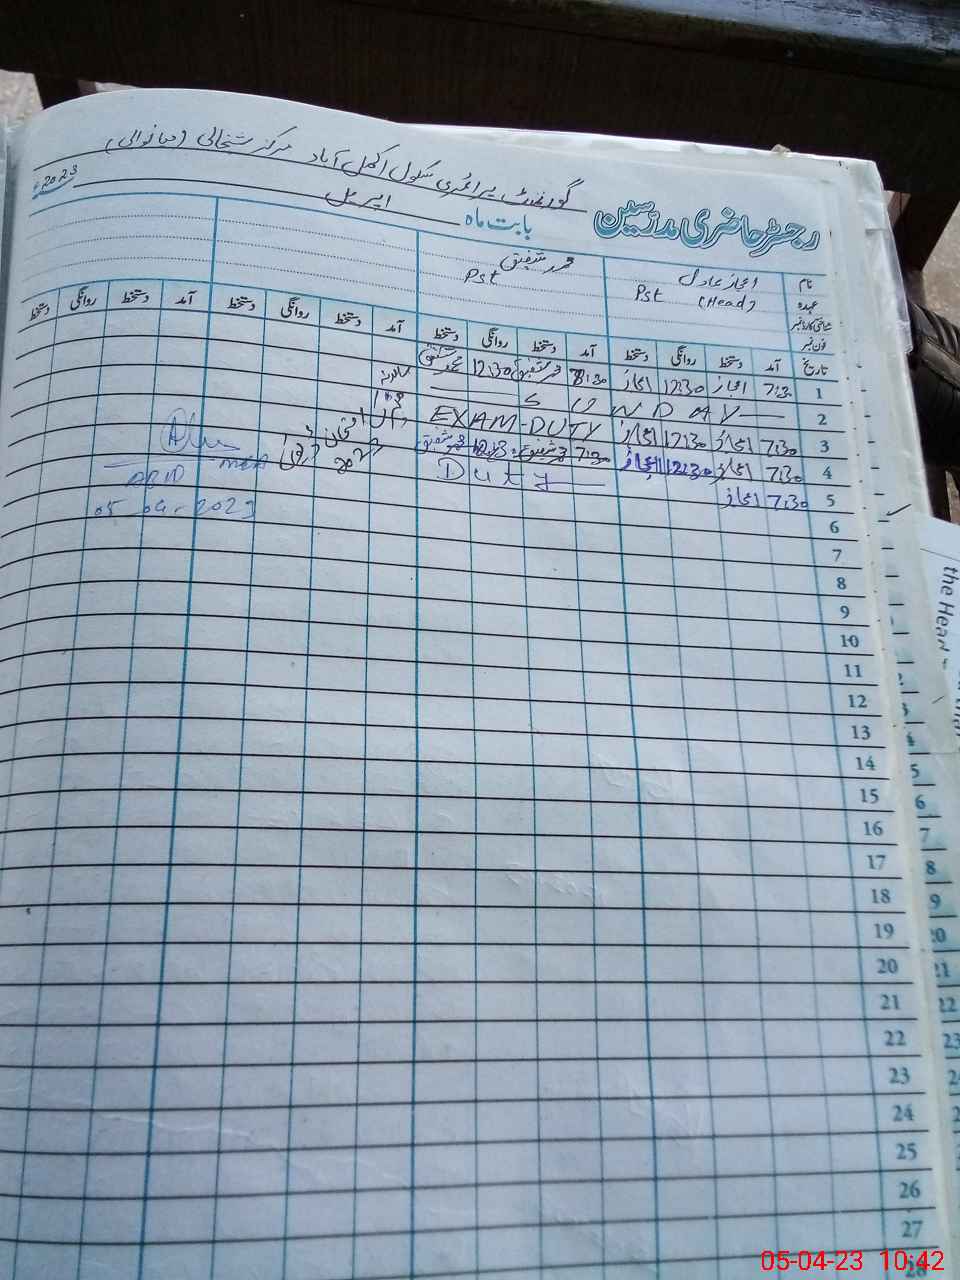 گورنمنٹ پرائمری سکول اکمل آباد مرکز شخالی (میانوالی)
رجسٹر حاضری مدرسین بابت ماہ اپریل 2023ء
نام اعجاز عادل محمد شفیق
عہدہ Pst (Head) Pst
شناختی کارڈ نمبر
فون نمبر
تاریخ آمد دستخط روانگی دستخط آمد دستخط روانگی دستخط آمد دستخط روانگی دستخط آمد دستخط روانگی دستخط
1 7:30 اعجاز 12:30 اعجاز 8:30 محمد شفیق 12:30 محمد شفیق
2 SUNDAY
3 7:30 اعجاز 12:30 اعجاز EXAM-DUTY
4 7:30 اعجاز 12:30 اعجاز 7:30 محمد شفیق 12:30 محمد شفیق
5 7:30 اعجاز Duty
سالانہ
امتحان
2023
MEA
05-04-2023
6
7
8
9
10
11
12
13
14
15
16
17
18
19
20
21
22
23
24
25
26
27
28
the Head
05-04-23 10:42